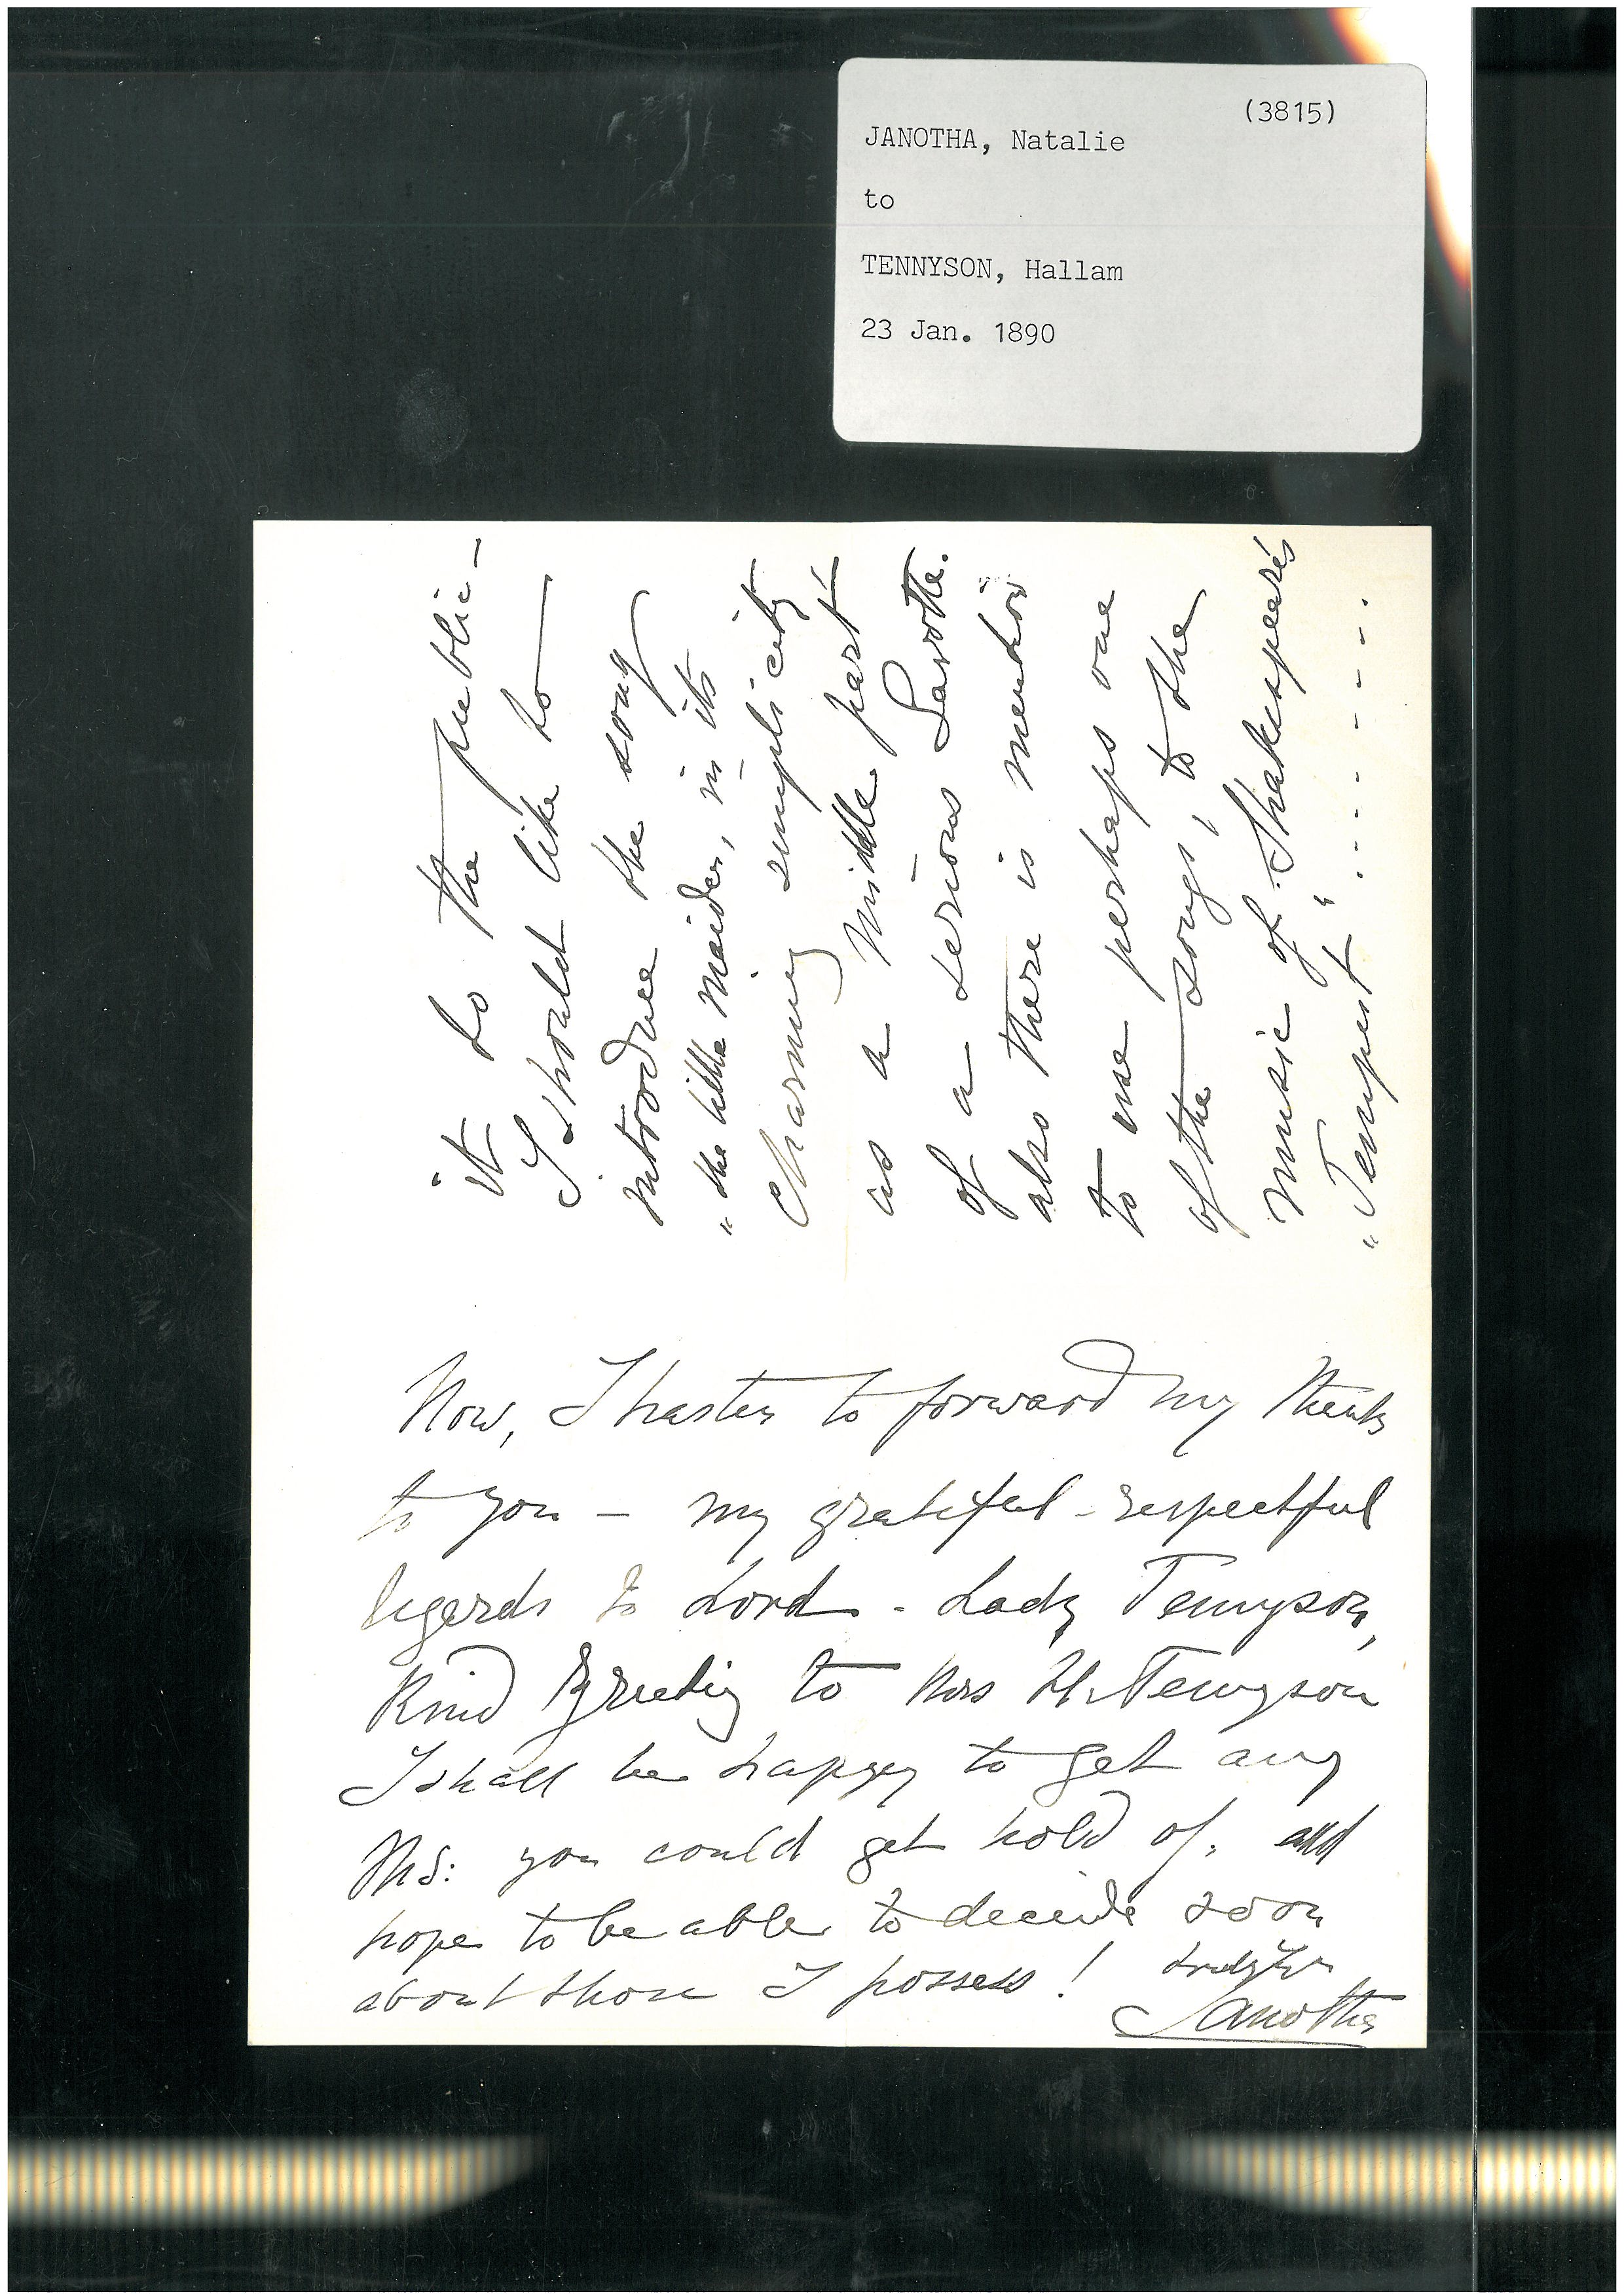 (3815)
JANOTHA, Natalie
to
TENNYSON, Hallam
23 Jan. 1890
it to the public -
I should like to
introduce the song
"the little Maiden, in its
Charming simplicity
as a Middle part
of a serious Gavotte.
also there is
to use perhaps one
of the songs, to the
music of Shakespeare's
"Tempest" . . . . . . .
Now, I hasten to forward my thanks
to you - my grateful - respectful
regards to Lord - Lady Tennyson,
Kind Greeting to Mrs H. Tennyson
I shall be happy to get any
MS: you could get hold of, and
hope to be able to decide soon
about those I possess!
Janotha